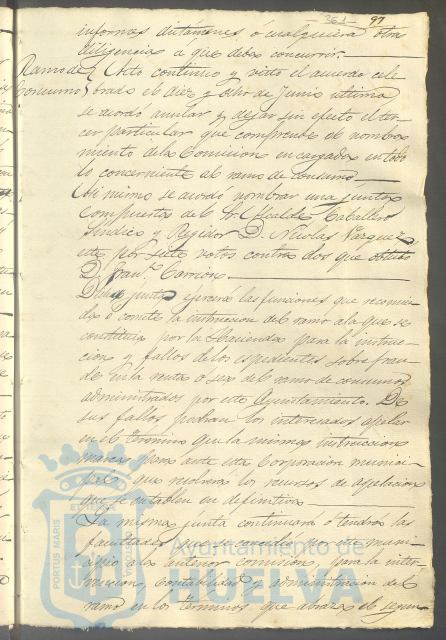 361 97
informes dictamenes ó cualquiera otra
diligencias a que deba concurrir.
Ramo de Consumo } Acto continuo y visto el acuerdo cele
brado el diez y ocho de Junio ultimo
se acordó anular y dejar sin efecto el ter
cer particular que comprende el nombra
miento de la Comision encargada en todo
lo concerniente al ramo de consumo
Asi mismo se acordó nombrar una junta
Compuesta del Sr. Alcalde Caballero
Sindico y Regidor D. Nicolas Vazquez
este por siete votos contra dos que obtubo
D. Fran.co Carrion.
Dicha junta ejercerá las funciones que recomien
da ó comete la instruccion del ramo a la que se
constituye por la Hacienda para la instruc
cion y fallos de los espedientes sobre frau
de en la renta ó sea del ramo de consumos
administrados por este Ayuntamiento. De
sus fallos podran los interesados apelar
en el termino que la misma instruccion
marca para ante esta Corporacion munici
pal que resolvera los recursos de apelacion
que se entablen en definitiva
La misma junta continuará ó tendrá las
facultades que se concedio por este muni
cipio a la anterior comision, para la inter
vencion, contabilidad y administracion del
ramo en los terminos que abraza el segun
PORTUS MARIS
Ayuntamiento de
HUELVA